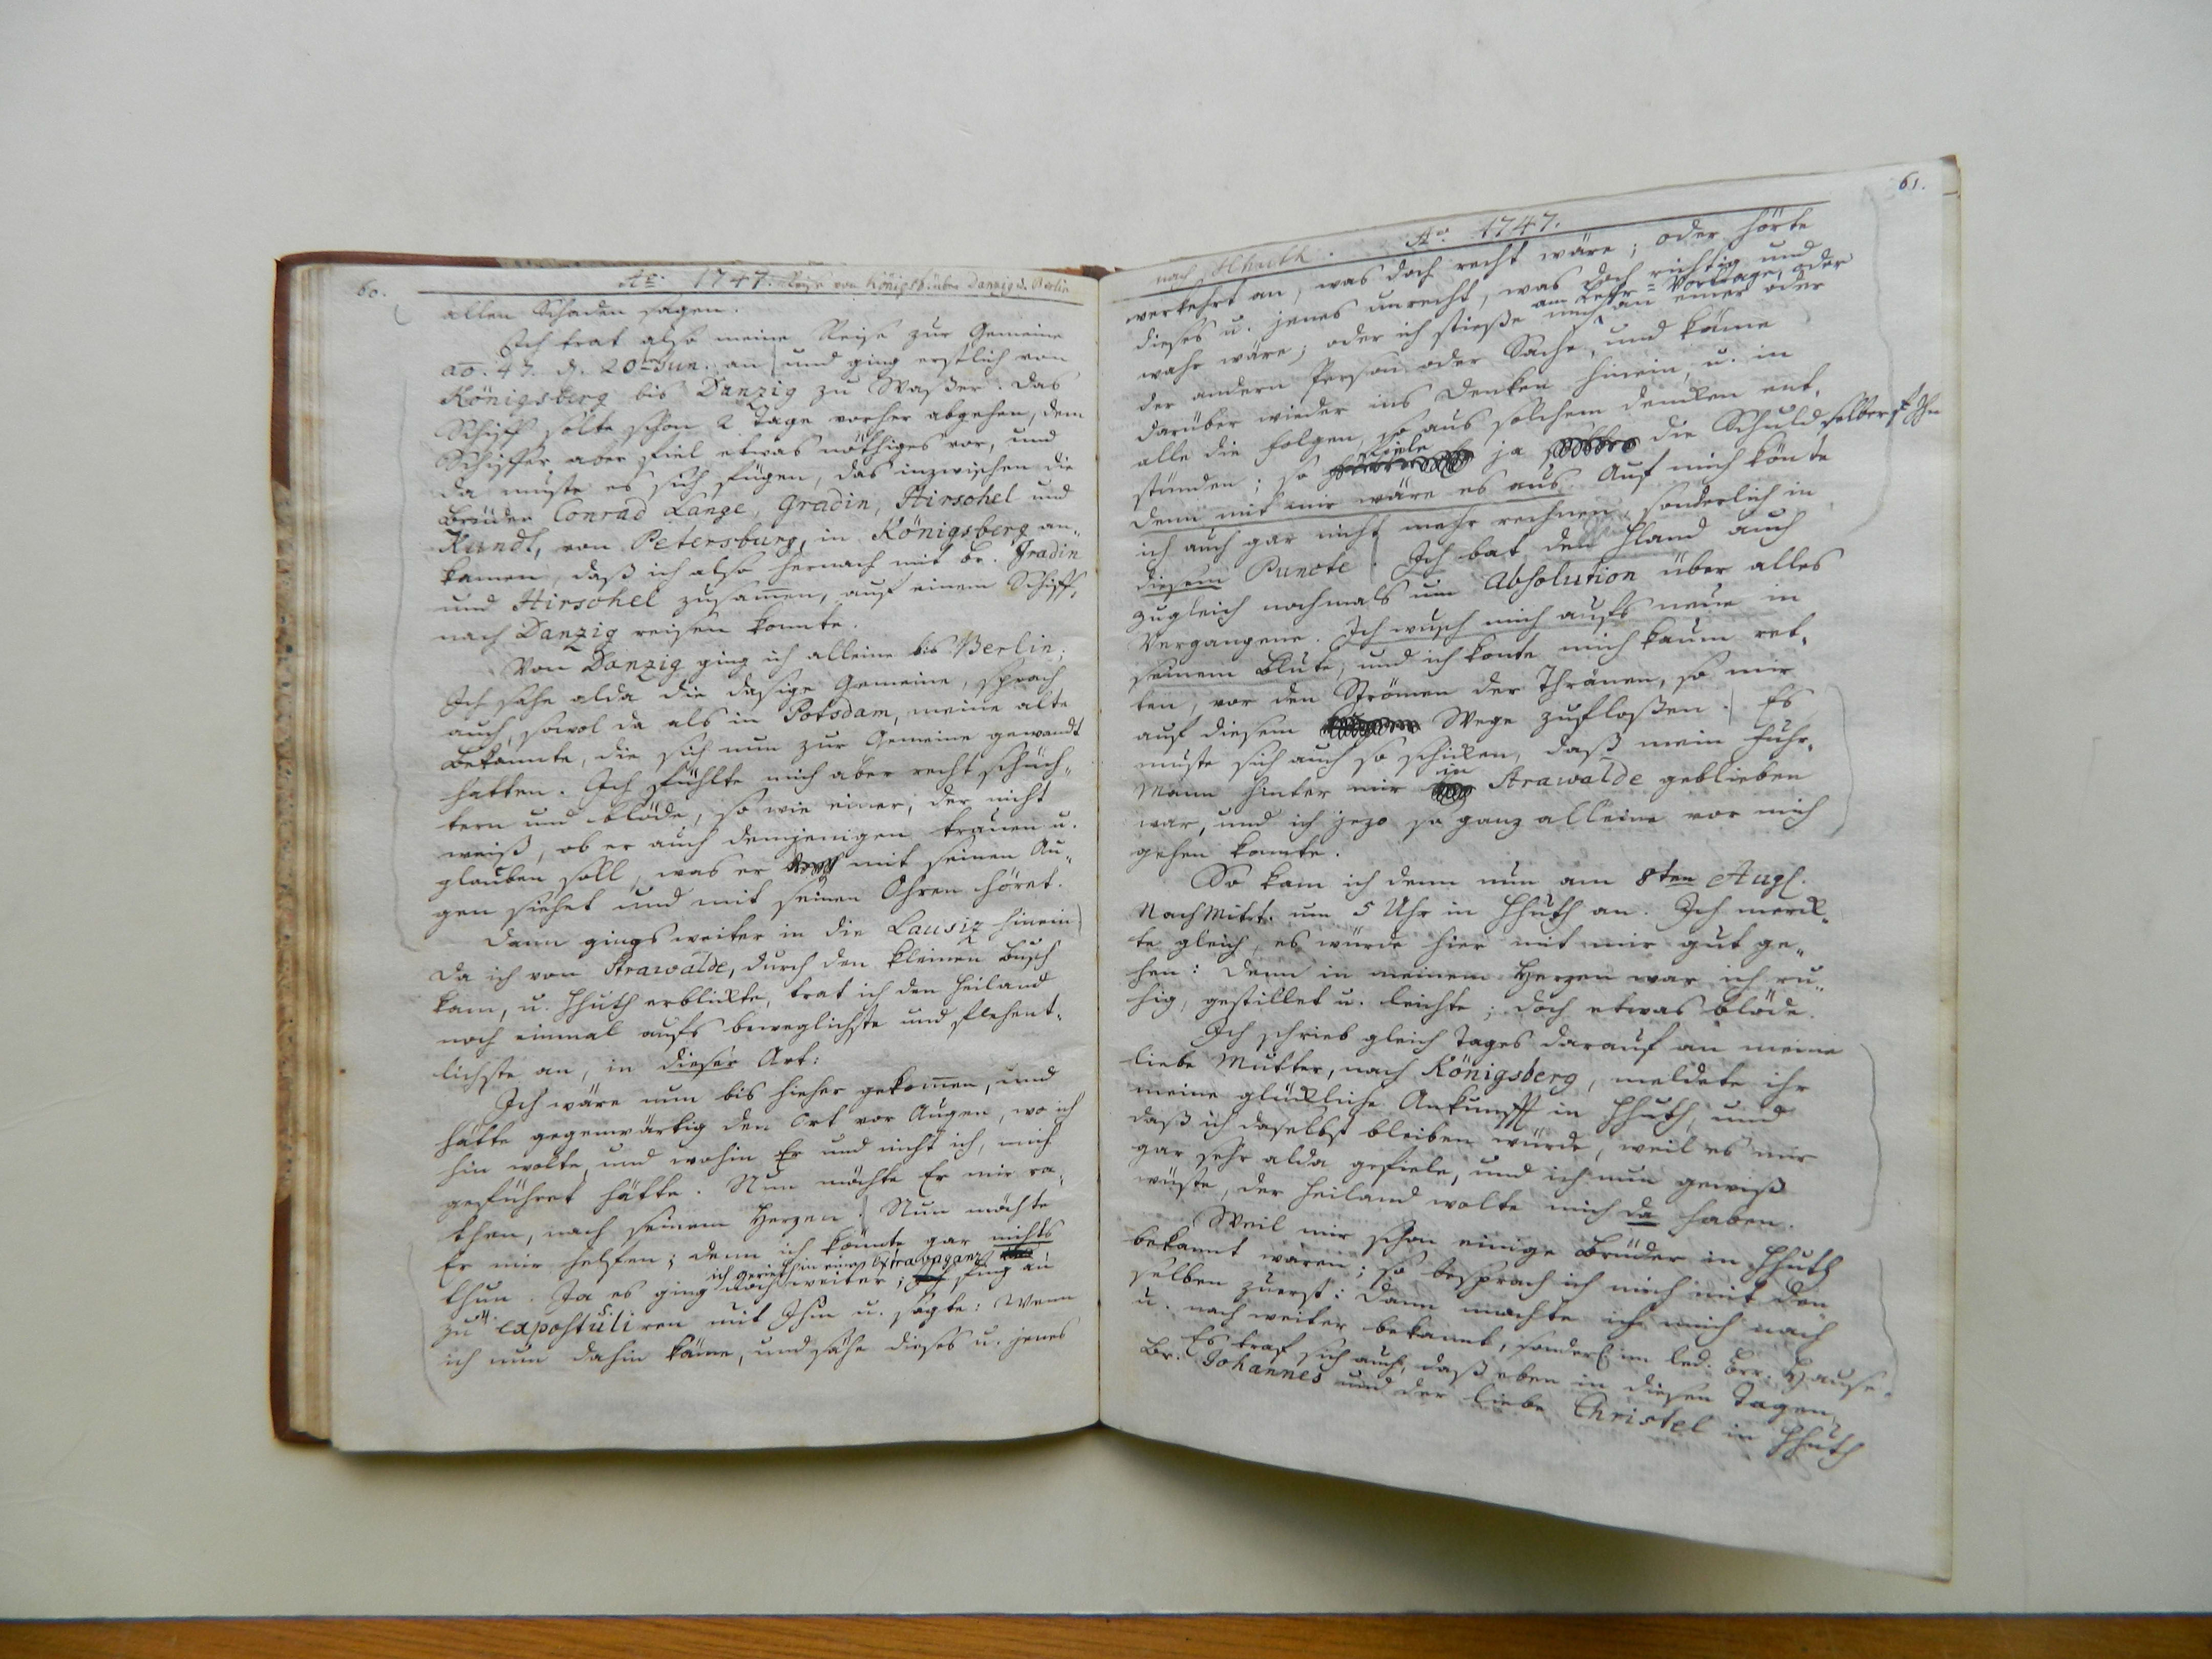 60.
Ao. 1747. Reise von Königsb. über Danzig u. Berlin
allen Schaden sagen.
Ich trat also meine Reise zur Gemeine
ao. 47. d. 20ten Jun. an und ging erstlich von
Königsberg bis Danzig zu Waßer. Das
Schiff solte schon 2 Tage vorher abgehen, dem
Schiffer aber fiel etwas nöthiges vor, und
da muste es sich fügen, das inzwischen die
Brüder Conrad Lange, Gradin, Hirschel und
Kundt, von Petersburg, in Königsberg an-
kamen, daß ich also hernach mit Br. Gradin
und Hirschel zusamen, auf einem Schiff,
nach Danzig reisen konnte.
Von Danzig ging ich alleine bis Berlin;
Ich sahe alda die dasige Gemeine, sprach
auch, sowol da als in Potsdam, meine alte
Bekannte, die sich nun zur Gemeine gewandt
hatten. Ich fühlte mich aber recht schüch-
tern und blöde, so wie einer, der nicht
weiß, ob er auch demjenigen trauen u.
glauben soll, was er mit seinen Au-
gen siehet und mit seinen Ohren höret.
Dann gings weiter in die Lausiz hinein
Da ich von Strawalde, durch den kleinen Busch
kam, u. Hhuth erblikte, trat ich den Heiland
noch einmal aufs beweglichste und flehent-
lichste an, in dieser Art:
Ich wäre nun bis hieher gekomen, und
hätte gegenwärtig den Ort vor Augen, wo ich
hin wolte, und wohin Er und nicht ich, mich
geführet hätte. Nun möchte Er mir ra-
then, nach seinem Herzen. Nun möchte
Er mir helfen; denn ich könnte gar nichts
ich gerieth in eine Extravaganz
thun. Ja es ging noch weiter; fing an
zu expostuliren mit Ihm u. sagte: Wenn
ich nun dahin käme, und sähe dieses u. jenes
61.
nach Hhuth. Ao. 1747.
verkehrt an, was doch recht wäre; oder hörte
dieses u. jenes unrecht, was doch richtig und
am Lehr-Vortrage, oder
wahr wäre; oder ich stieße mich an einer oder
der andern Person oder Sache, und käme
darüber wieder ins Denken hinein, u. in
alle die Folgen, so aus solchem denken ent-
stünden; so fiele ja die Schuld selber auf Ihn
denn mit mir wäre es aus. Auf mich könte
ich auch gar nicht mehr rechnen, sonderlich in
diesem Puncte. Ich bat den Hland auch
zugleich nochmals um Absolution über alles
Vergangene. Ich wusch mich aufs neue in
seinem Blute, und ich konte mich kaum ret-
ten, vor den Strömen der Thränen, so mir
auf diesem Wege zufloßen. Es
muste sich auch so schiken, daß mein Fuhr-
Mann hinter mir in Strawalde geblieben
war, und ich jezo so ganz alleine vor mich
gehen konnte.
So kam ich denn nun am 8ten Augl.
NachMitt. um 5 Uhr in Hhuth an. Ich merk-
te gleich, es würde hier mit mir gut ge-
hen: Denn in meinem Herzen war ich ru-
hig, gestillet u. leichte; doch etwas blöde.
Ich schrieb gleich Tages darauf an meine
liebe Mutter, nach Königsberg, meldete ihr
meine glükliche Ankunfft in Hhuth, und
daß ich daselbst bleiben würde, weil es mir
gar sehr alda gefiele, und ich nun gewiß
wüste, der Heiland wolte mich da haben.
Weil mir schon einige Brüder in Hhuth
bekannt waren; so besprach ich mich mit den
selben zuerst: Dann machte ich mich nach
u. nach weiter bekannt, sonderl. im led. Brr. Hause.
Es traf sich auch, daß eben in diesen Tagen,
Br. Johannes und der liebe Christel in Hhuth